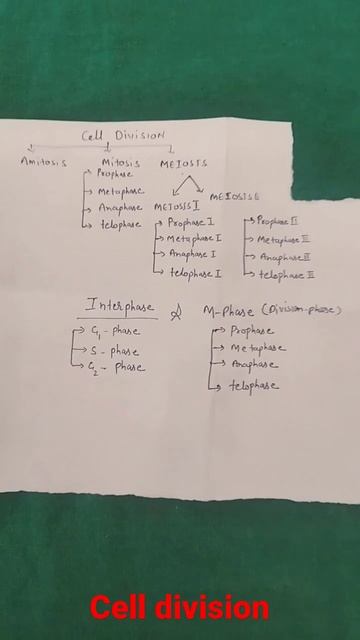 Cell Division
Amitosis Mitosis MEIOSIS
Prophase
Metaphase
Anaphase
telophase
MEIOSIS I
Prophase I
Metaphase I
Anaphase I
telophase I
MEIOSIS II
Prophase II
Metaphase II
Anaphase II
telophase II
Interphase & M-Phase (Division-phase)
G1-phase
S-phase
G2-phase
Prophase
Metaphase
Anaphase
telophase
Cell division